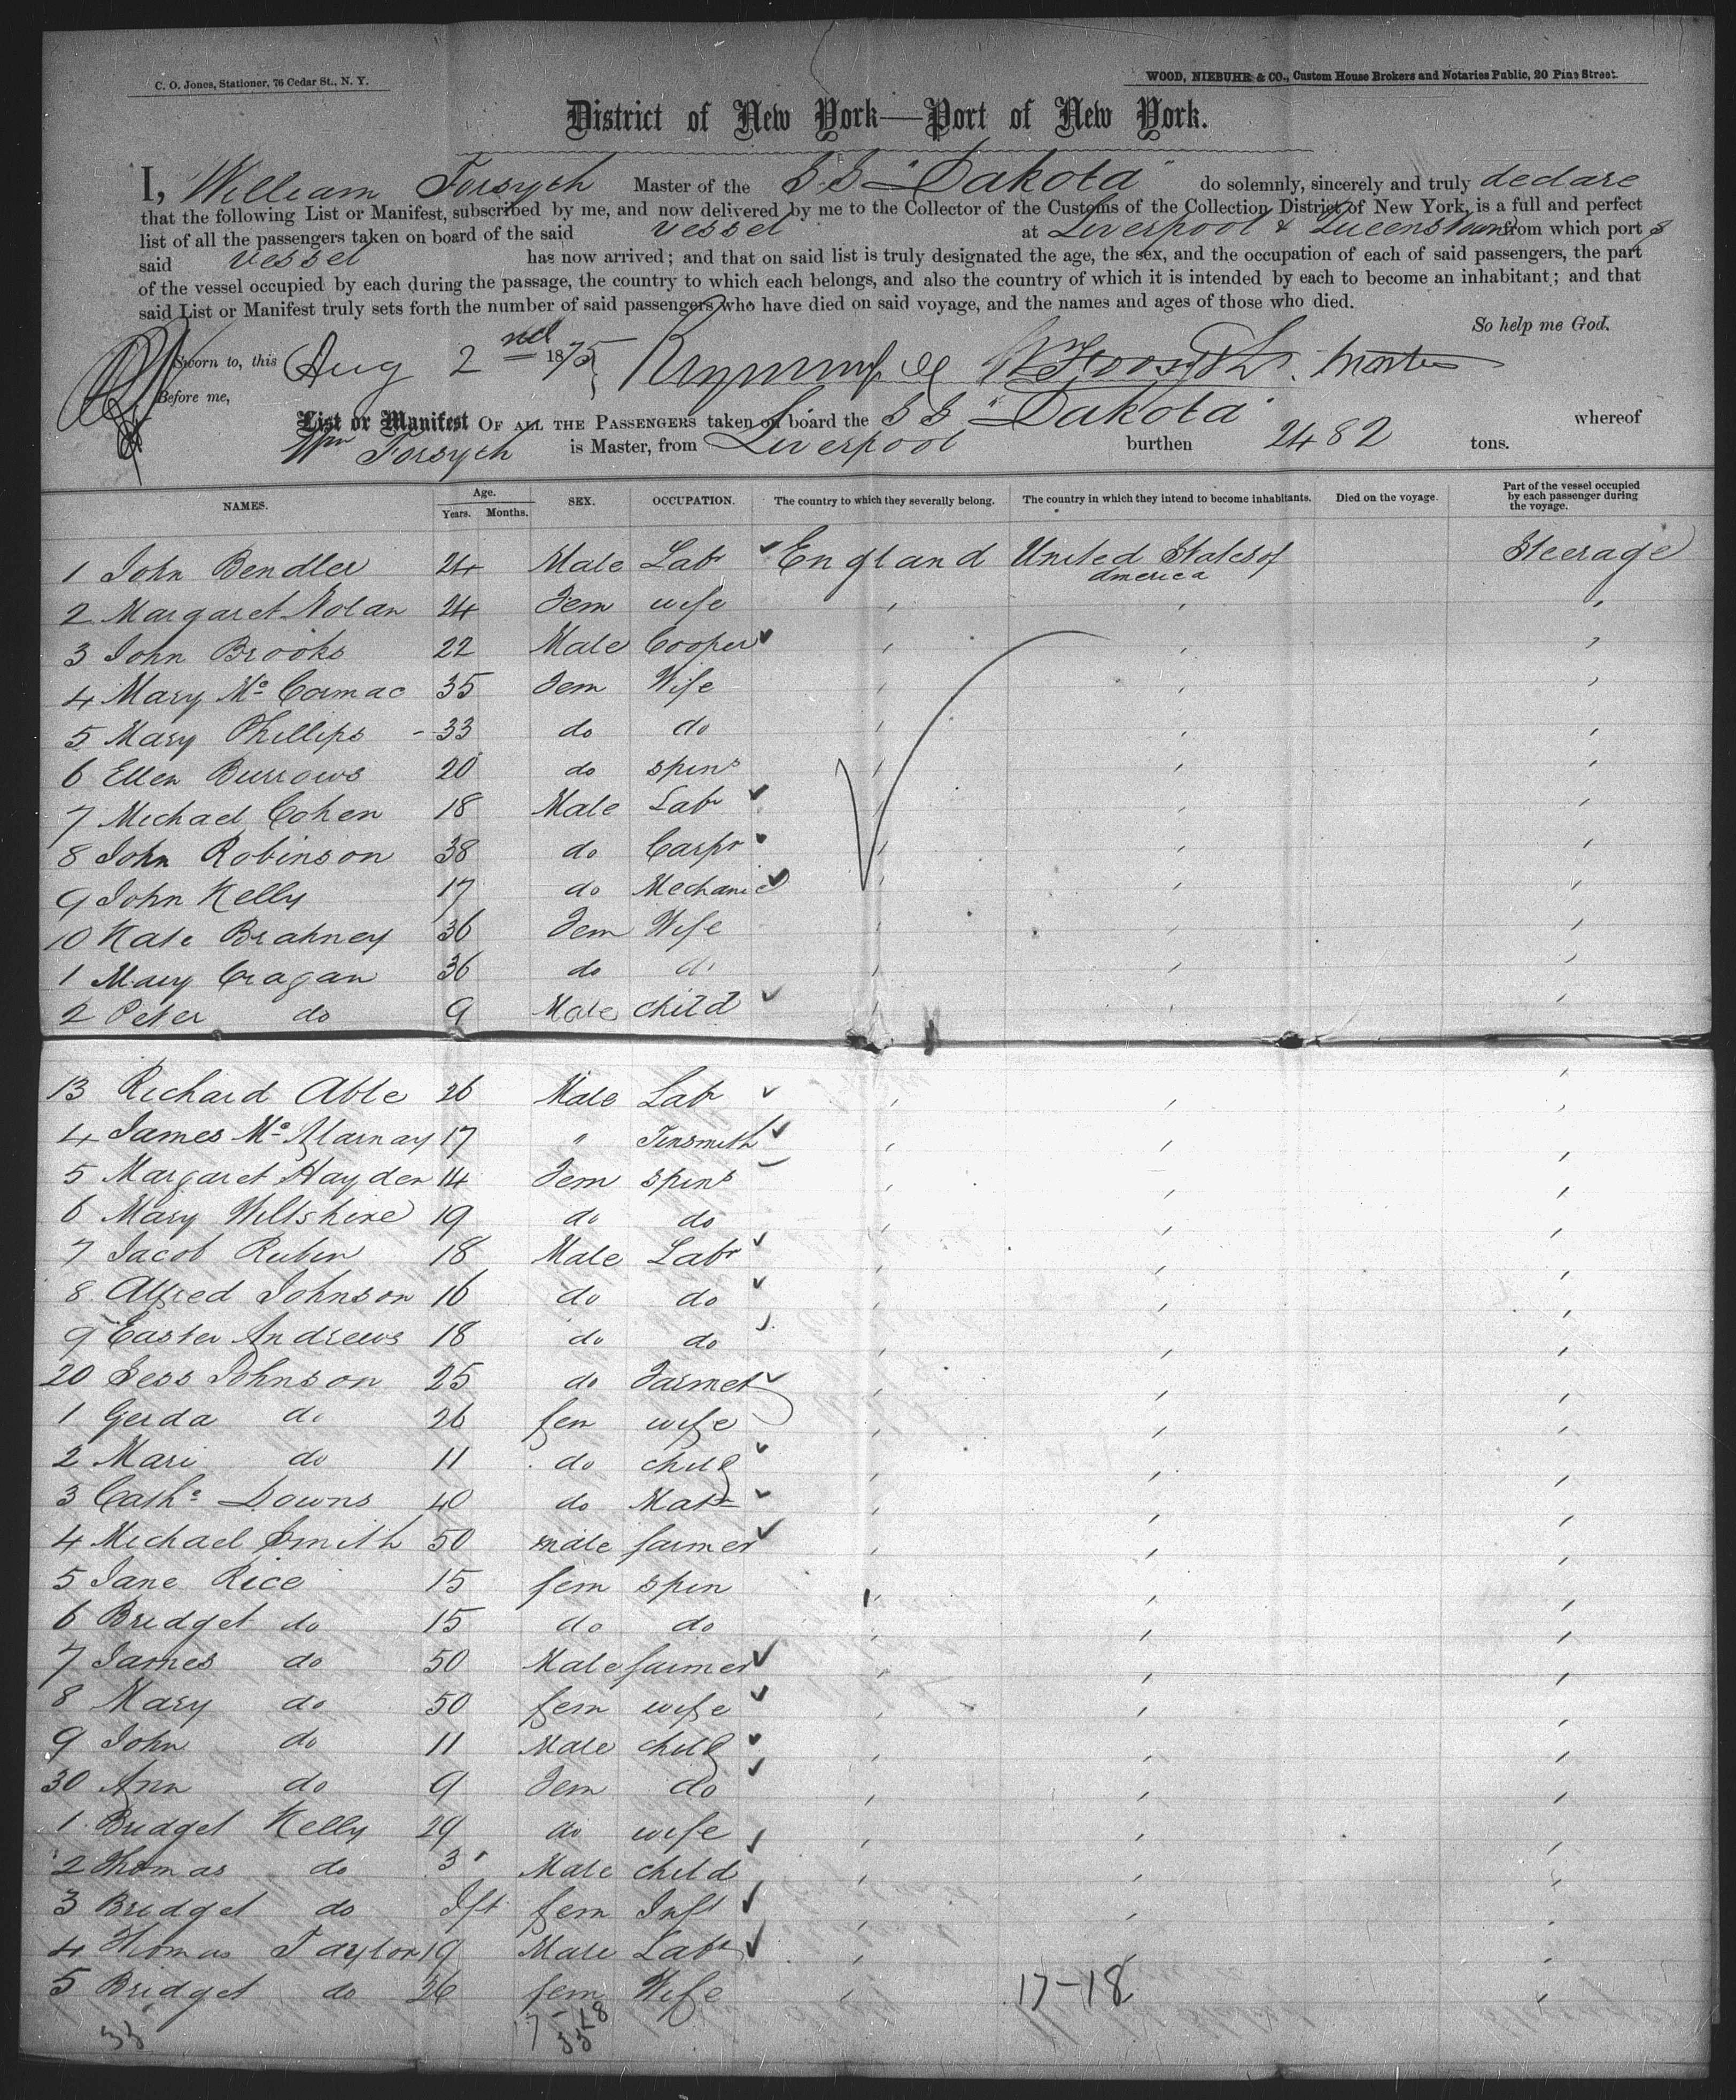 C. O. Jones, Stationer, 76 Cedar St., N. Y.
WOOD, NIEBUHR & CO., Custom House Brokers and Notaries Public, 20 Pine Street.
District of New York—Port of New York.
I, William Forsyth Master of the S.S. "Dakota" do solemnly, sincerely and truly declare
that the following List or Manifest, subscribed by me, and now delivered by me to the Collector of the Customs of the Collection District of New York, is a full and perfect
list of all the passengers taken on board of the said vessel at Liverpool & Queenstown from which port s
said vessel has now arrived; and that on said list is truly designated the age, the sex, and the occupation of each of said passengers, the part
of the vessel occupied by each during the passage, the country to which each belongs, and also the country of which it is intended by each to become an inhabitant; and that
said List or Manifest truly sets forth the number of said passengers who have died on said voyage, and the names and ages of those who died.
So help me God.
Sworn to, this Aug 2nd 1875 Wm Forsyth. Master
Before me,
List or Manifest OF ALL THE PASSENGERS taken on board the S.S. "Dakota" whereof
Wm Forsyth is Master, from Liverpool burthen 2482 tons.
NAMES. Age. Years. Months. SEX. OCCUPATION. The country to which they severally belong. The country in which they intend to become inhabitants. Died on the voyage. Part of the vessel occupied by each passenger during the voyage.
1 John Bendler 24 Male Labr England United States of America Steerage
2 Margaret Nolan 24 Fem wife
3 John Brooks 22 Male Cooper
4 Mary Mc Cormac 35 Fem Wife
5 Mary Phillips - 33 do do
6 Ellen Burrows 20 do spins
7 Michael Cohen 18 Male Labr
8 John Robinson 38 do Carpr
9 John Kelly 17 do Mechanic
10 Kate Brahney 36 Fem Wife
1 Mary Cragan 36 do do
2 Peter do 9 Male child
13 Richard Able 26 Male Labr
4 James Mc 17 " Tinsmith
5 Margaret Hayden 14 Fem spins
6 Mary Wiltshire 19 do do
7 Jacob Rubin 18 Male Labr
8 Alfred Johnson 16 do do
9 Easter Andrews 18 do do
20 Jess Johnson 25 do Farmer
1 Gerda do 26 fem wife
2 Mari do 11 do child
3 Cathe Downs 40 do Mat
4 Michael Smith 50 male farmer
5 Jane Rice 15 fem spin
6 Bridget do 15 do do
7 James do 50 Male farmer
8 Mary do 50 fem wife
9 John do 11 Male child
30 Ann do 9 Fem do
1 Bridget Kelly 29 do wife
2 Thomas do 3 Male child
3 Bridget do Ift fem Inft
4 Thomas Taylor 19 Male Labr
5 Bridget do 26 fem Wife
17-18
33 17-18
33